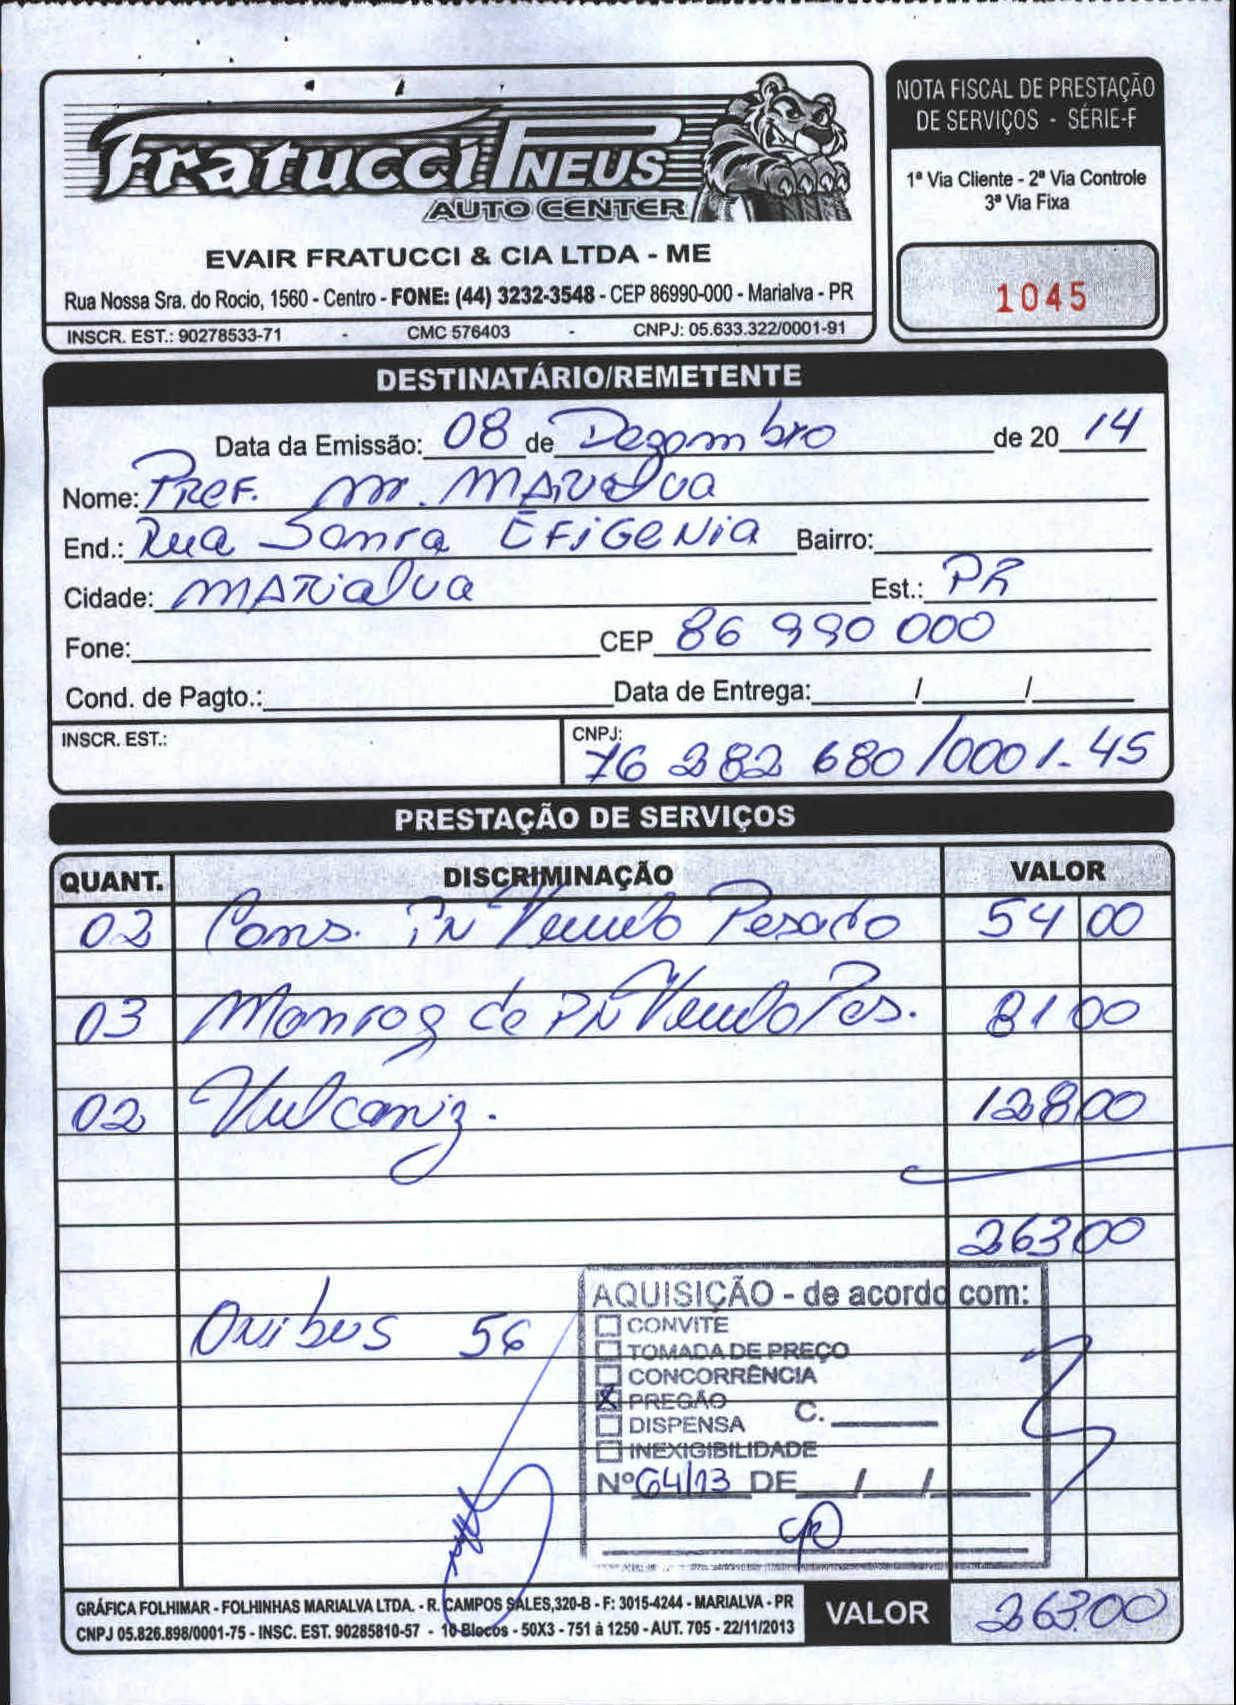 Fratucci PNEUS
AUTO CENTER
EVAIR FRATUCCI & CIA LTDA - ME
Rua Nossa Sra. do Rocio, 1560 - Centro - FONE: (44) 3232-3548 - CEP 86990-000 - Marialva - PR
INSCR. EST.: 90278533-71 - CMC 576403 - CNPJ: 05.633.322/0001-91
NOTA FISCAL DE PRESTAÇÃO
DE SERVIÇOS - SÉRIE-F
1ª Via Cliente - 2ª Via Controle
3ª Via Fixa
1045
DESTINATÁRIO/REMETENTE
Data da Emissão: 08 de Dezembro de 20 14
Nome: Pref. M. Marialva
End.: Rua Santa Efigenia Bairro:
Cidade: Marialva Est.: PR
Fone: CEP 86 990 000
Cond. de Pagto.: Data de Entrega: / /
INSCR. EST.: CNPJ: 76 282 680/0001-45
PRESTAÇÃO DE SERVIÇOS
QUANT. DISCRIMINAÇÃO VALOR
02 Cons. PN Veiculo Pesado 54 00
03 Montag de PN Veiculo Pes. 81 00
02 Vulcaniz. 128 00
263 00
Onibus 56
AQUISIÇÃO - de acordo com:
CONVITE
TOMADA DE PREÇO
CONCORRÊNCIA
X PREGÃO
DISPENSA C.
INEXIGIBILIDADE
Nº 64/13 DE / /
GRÁFICA FOLHIMAR - FOLHINHAS MARIALVA LTDA. - R. CAMPOS SALES,320-B - F: 3015-4244 - MARIALVA - PR
CNPJ 05.826.898/0001-75 - INSC. EST. 90285810-57 - 10 Blocos - 50X3 - 751 à 1250 - AUT. 705 - 22/11/2013
VALOR 263.00